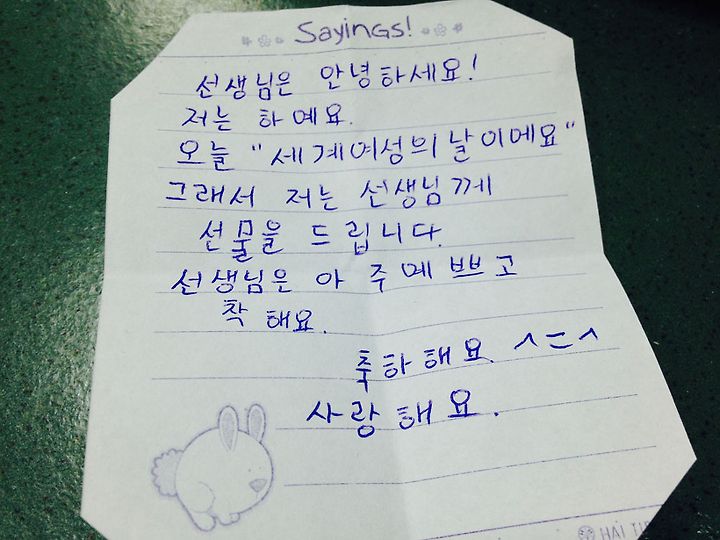 Sayings!
선생님은 안녕하세요!
저는 하예요.
오늘 "세계여성의 날이에요"
그래서 저는 선생님께
선물을 드립니다.
선생님은 아주 메쁘고
착해요.
축하해요. ^=^
사랑해요.
HẢI TIẾ